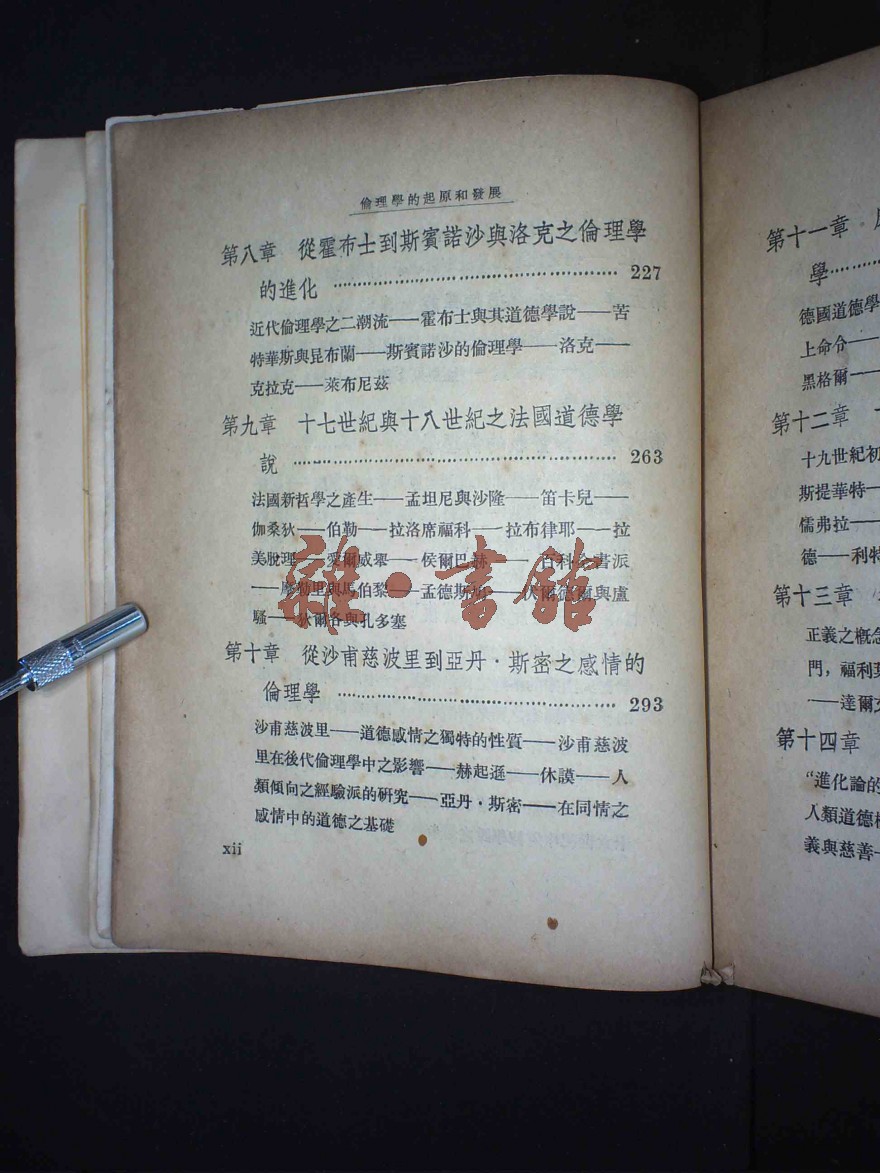 倫理學的起原和發展
第八章 從霍布士到斯賓諾沙與洛克之倫理學
的進化 ……………………………………… 227
近代倫理學之二潮流——霍布士與其道德學說——苦
特華斯與昆布蘭——斯賓諾沙的倫理學——洛克——
克拉克——萊布尼茲
第九章 十七世紀與十八世紀之法國道德學
說 ……………………………………… 263
法國新哲學之產生——孟坦尼與沙隆——笛卡兒——
伽桑狄——伯勒——拉洛席福科——拉布律耶——拉
美脫理——愛爾威舉——侯爾巴赫——百科全書派
——摩勒里與馬伯黎——孟德斯鳩——伏爾德爾與盧
騷——狄爾各與孔多塞
第十章 從沙甫慈波里到亞丹·斯密之感情的
倫理學 ……………………………………… 293
沙甫慈波里——道德感情之獨特的性質——沙甫慈波
里在後代倫理學中之影響——赫起遜——休謨——人
類傾向之經驗派的研究——亞丹·斯密——在同情之
感情中的道德之基礎
xii
雜·書館
第十一章
學……
德國道德學
上命令——
黑格爾——
第十二章
十九世紀初
斯提華特——
儒弗拉——
德——利特
第十三章
正義之概念
門，福利葉
——達爾文
第十四章
“進化論的
人類道德根
義與慈善—